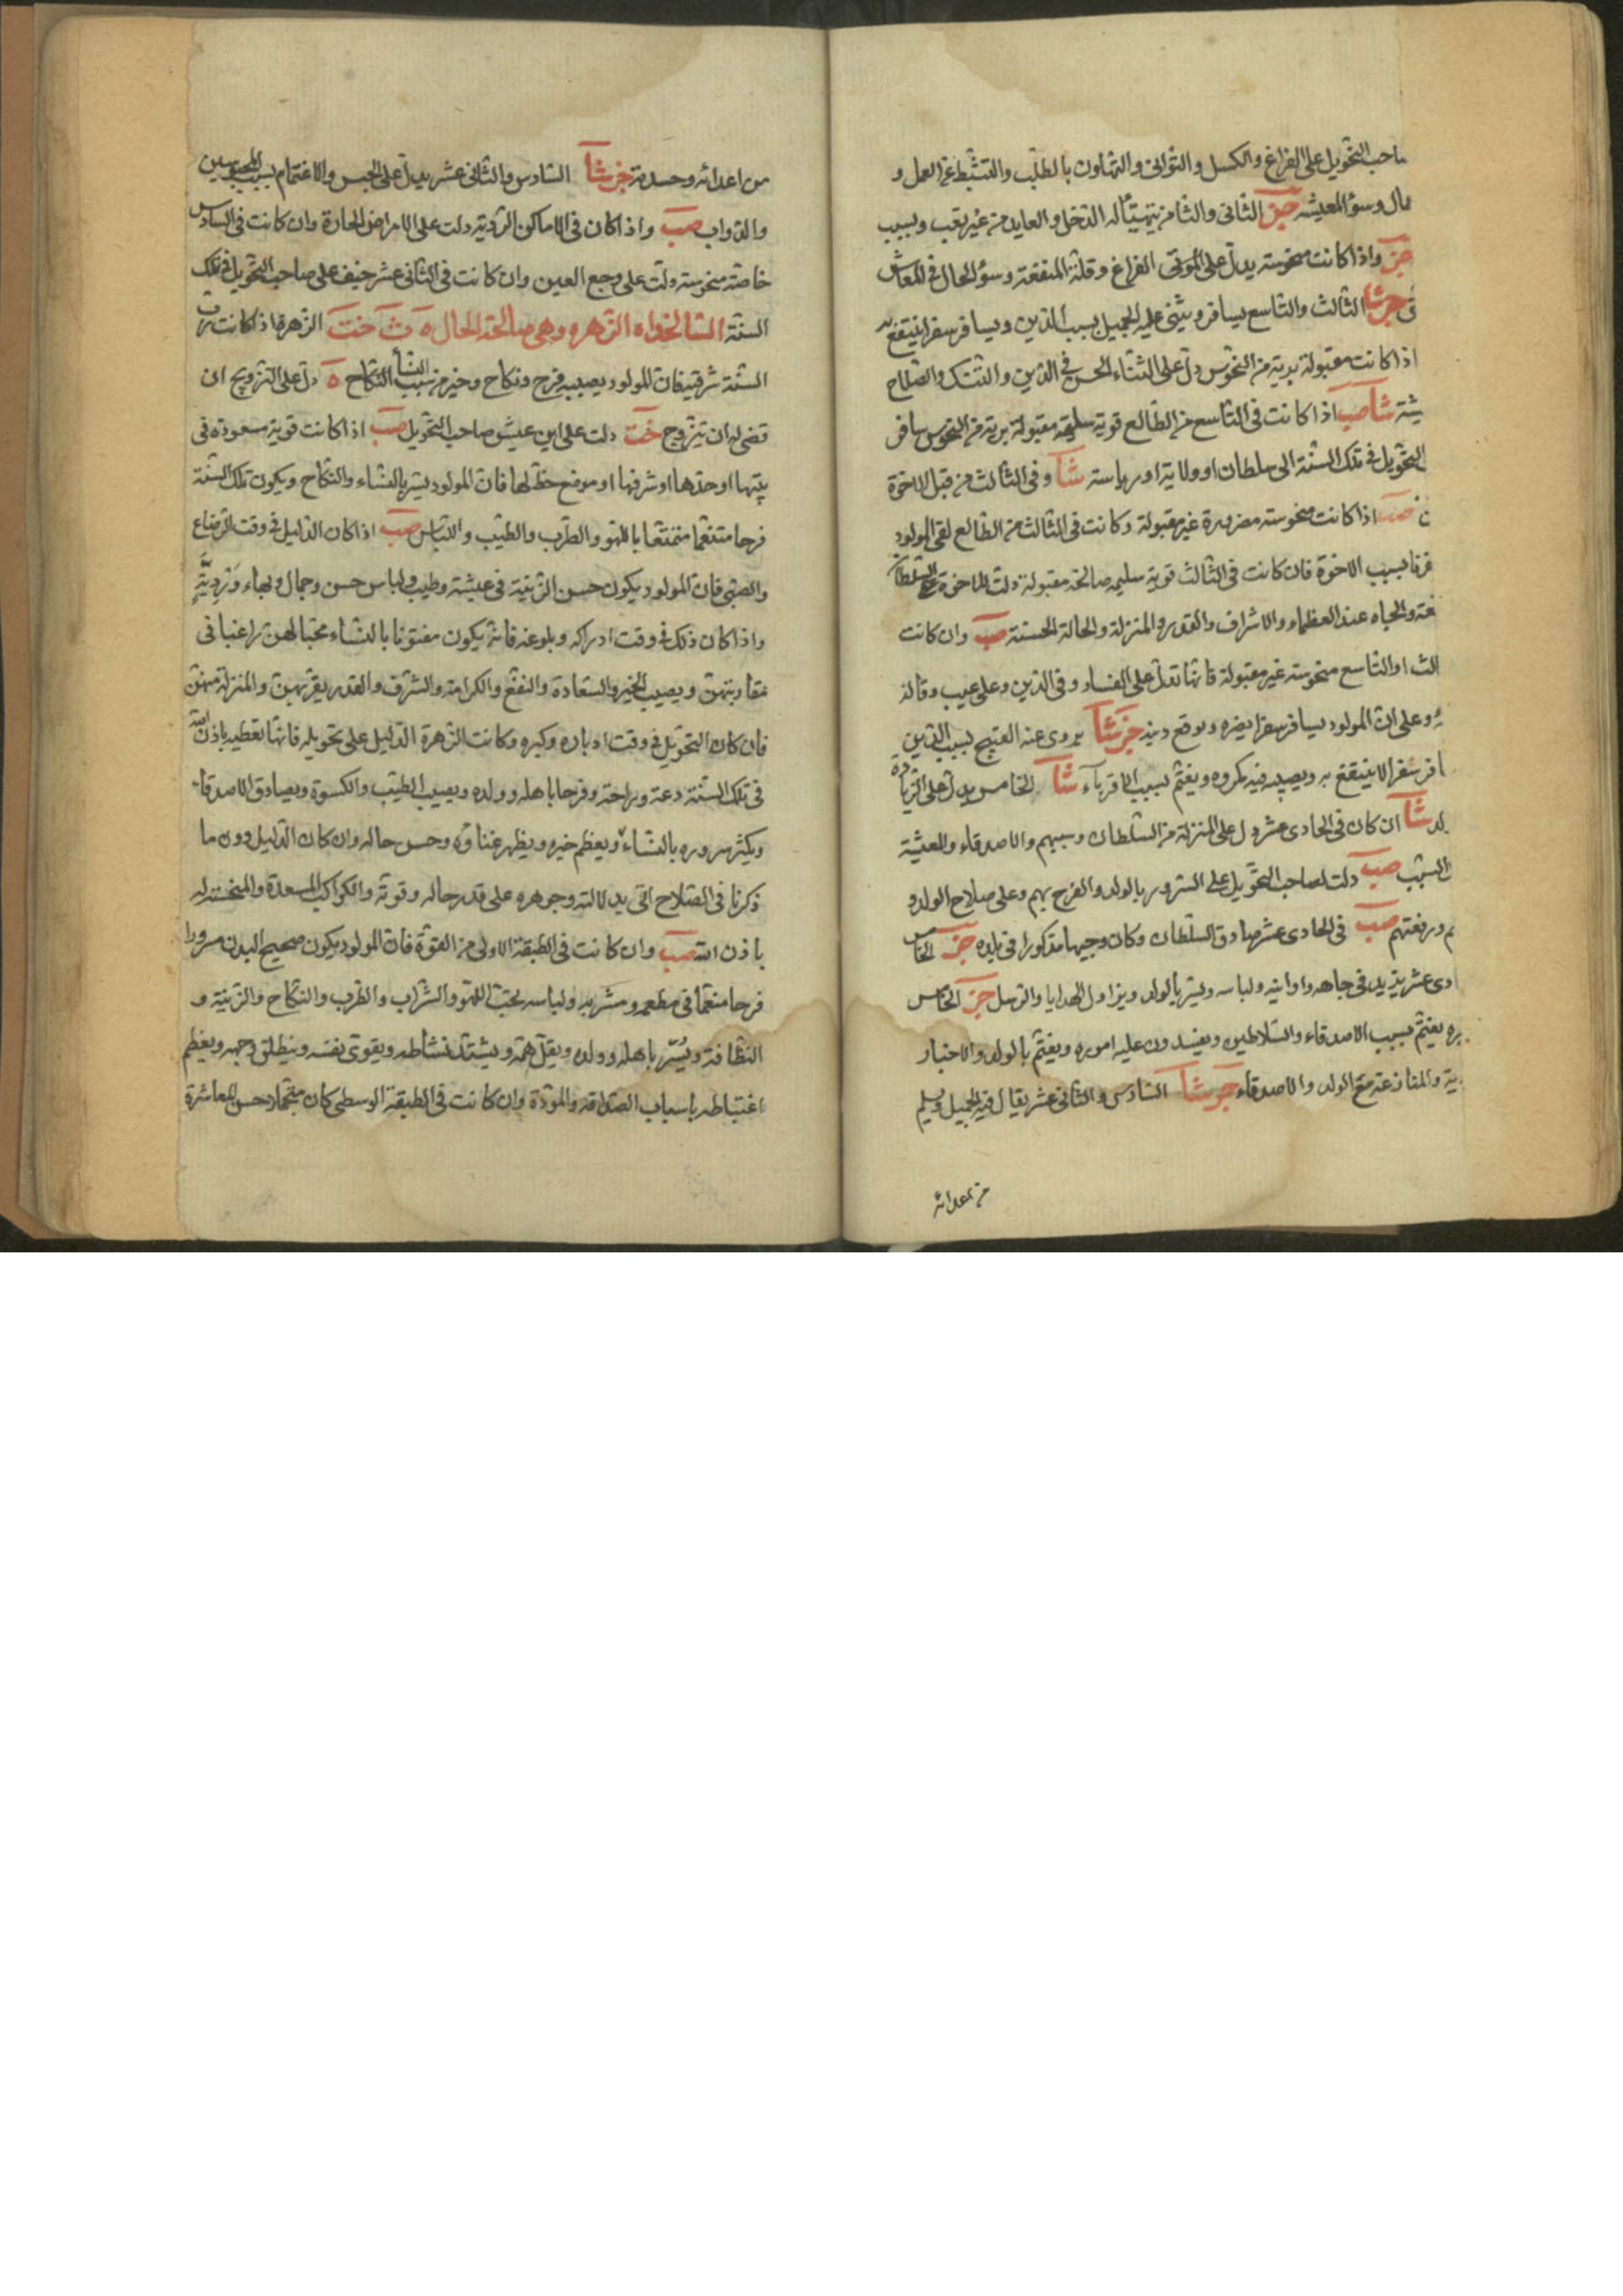 صاحب التحويل على الفراغ والكسل والتوانى والتهاون بالطلب والتثبط عن العمل و
مال وسؤ المعيشه الثانى والثامن يتهيّأ له الدخل والعايد من غير تعب وبسبب
واذا كانت منحوسة يدل على الفراغ وقلة المنفعة وسؤ الحال فى المعاش
الثالث والتاسع يسافر ويثنى عليه الجميل بسبب الدين ويسافر سفرا ينتفع به
اذا كانت مقبولة برية من النحوس دل على الثناء الحسن فى الدين والنسك والصلاح
شآ صب اذا كانت فى التاسع من الطالع قوية سليمة مقبولة برية من النحوس سافر
التحويل فى تلك السنة الى سلطان او ولاية او رياسة شآ وفى الثالث من قبل الاخوة
صب اذا كانت منحوسة مضرورة غير مقبولة وكانت فى الثالث من الطالع لقى المولود
بسبب الاخوة فان كانت فى الثالث قوية سليمه صالحة مقبولة دلت للاخوة على السلطان
والجاه عند العظماء والاشراف والقدر والمنزلة والحالة الحسنة صب وان كانت
الث او التاسع منحوسة غير مقبولة فانها تدل على الفساد فى الدين وعلى عيب وقالة
وعلى ان المولود يسافر سفرا يضره ويوقع دينه يروى عنه القبيح بسبب الدين
افر سفرا لا ينتفع به ويصيبه فيه مكروه ويغتم بسبب الاقرباء شآ الخامس يدل على الزيادة
لد شآ ان كان فى الحادى عشر دل على المنزلة من السلطان وسببهم والاصدقاء والمعيشة
السبب صب دلت لصاحب التحويل على السرور بالولد والفرح بهم وعلى صلاح الولد و
م ورفعتهم صب فى الحادى عشر صادق السلطان وكان وجيها مذكورا فى بلده الخامس
ادى عشر يزيد فى جاهه واوانيه ولباسه ويسر بالولد ويزاول الهدايا والرسل الخامس
يره يغتم بسبب الاصدقاء والسلاطين ويفسدون عليه اموره ويغتم بالولد والاخبار
ية والمنازعة مع الولد والاصدقاء السادس والثانى عشر يقال فيه الجميل ويسلم
من اعدائه
من اعدائه وحسدته السادس والثانى عشر يدل على الحبس والاغتمام بسبب المحبوسين
والدواب صب واذا كان فى الاماكن الردية دلت على الامراض الحارة وان كانت فى السادس
خاصة منحوسة دلت على وجع العين وان كانت فى الثانى عشر خيف على صاحب التحويل فى تلك
السنة السالخداه الزهره وهى صالحة الحال الزهرة اذا كانت رب
السنة شرقية فان للمولود يصيبه فرح ونكاح وخير من سبب النسا النكاح دل على التزويج ان
قضى له ان يتزوج دلت على اين عيش صاحب التحويل صب اذا كانت قوية مسعودة فى
بيتها او حدها او شرفها او موضع حظ لها فان المولود يسر بالنساء والنكاح ويكون تلك السنة
فرحا متنعما متمتعا باللهو والطرب والطيب واللباس صب اذا كان الدليل فى وقت الرضاع
والصبى فان المولود يكون حسن التربية فى عيشة وطيب ولباس حسن وجمال وبهاء
واذا كان ذلك فى وقت ادراكه وبلوغه فانه يكون مفتونا بالنساء محبا لهن راغبا فى
مقاربتهن ويصيب الخير والسعادة والنفع والكرامة والشرف والقدر بقربهن والمنزلة منهن
فان كان التحويل فى وقت ادباره وكبره وكانت الزهرة الدليل على تحويله فانها تعطيه باذن الله
فى تلك السنة دعة وراحة وفرحا باهله وولده ويصيب الطيب والكسوة ويصادق الاصدقاء
ويكثر سروره بالنساء ويعظم خيره ويظهر غناؤه وحسن حاله وان كان الدليل دون ما
ذكرنا فى الصلاح اتى بدلالته وجوهره على قدر حاله وقوته والكواكب المسعدة والمنحسة له
باذن الله صب وان كانت فى الطبقة الاولى من القوة فان المولود يكون صحيح البدن مسرورا
فرحا منعما فى مطعمه ومشربه ولباسه يحب اللهو والشراب والطرب والنكاح والزينة و
النظافة ويُسّر باهله وولده ويقل همه ويشتد نشاطه ويقوى نفسه وينطلق وجهه ويعظم
اغتباطه باسباب الصداقة والمودة وان كانت فى الطبقة الوسطى كان حسن المعاشرة